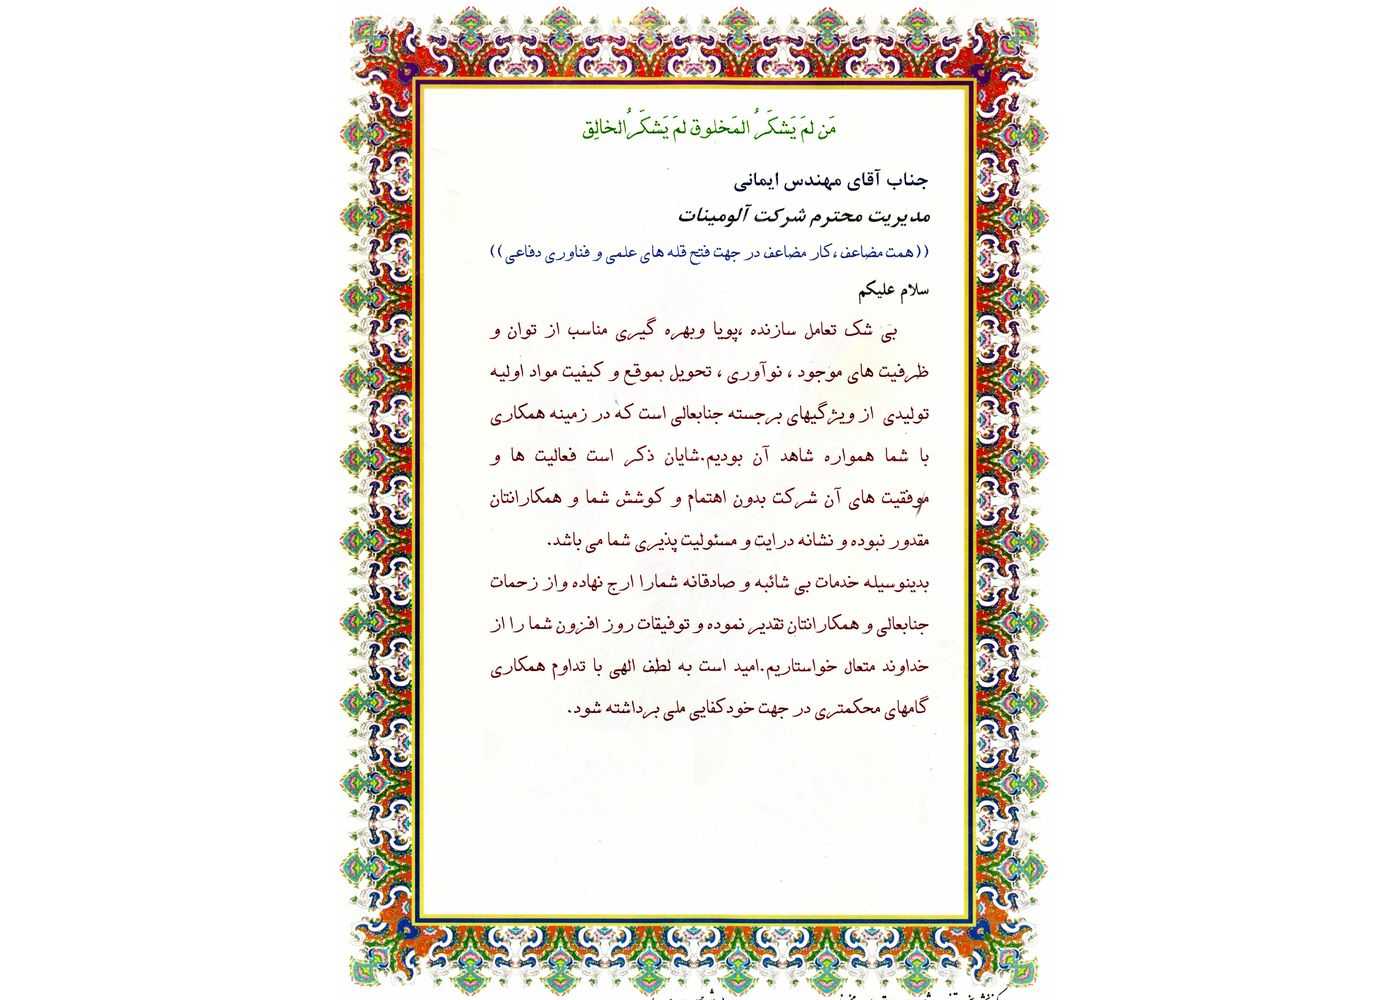 مَن لَم یَشکَرُ المَخلوق لَم یَشکَرُ الخالِق
جناب آقای مهندس ایمانی
مدیریت محترم شرکت آلومینات
((همت مضاعف ،کار مضاعف در جهت فتح قله های علمی و فناوری دفاعی))
سلام علیکم
بی شک تعامل سازنده ،پویا وبهره گیری مناسب از توان و
ظرفیت های موجود ، نوآوری ، تحویل بموقع و کیفیت مواد اولیه
تولیدی از ویژگیهای برجسته جنابعالی است که در زمینه همکاری
با شما همواره شاهد آن بودیم.شایان ذکر است فعالیت ها و
موفقیت های آن شرکت بدون اهتمام و کوشش شما و همکارانتان
مقدور نبوده و نشانه درایت و مسئولیت پذیری شما می باشد.
بدینوسیله خدمات بی شائبه و صادقانه شمارا ارج نهاده واز زحمات
جنابعالی و همکارانتان تقدیر نموده و توفیقات روز افزون شما را از
خداوند متعال خواستاریم.امید است به لطف الهی با تداوم همکاری
گامهای محکمتری در جهت خودکفایی ملی برداشته شود.